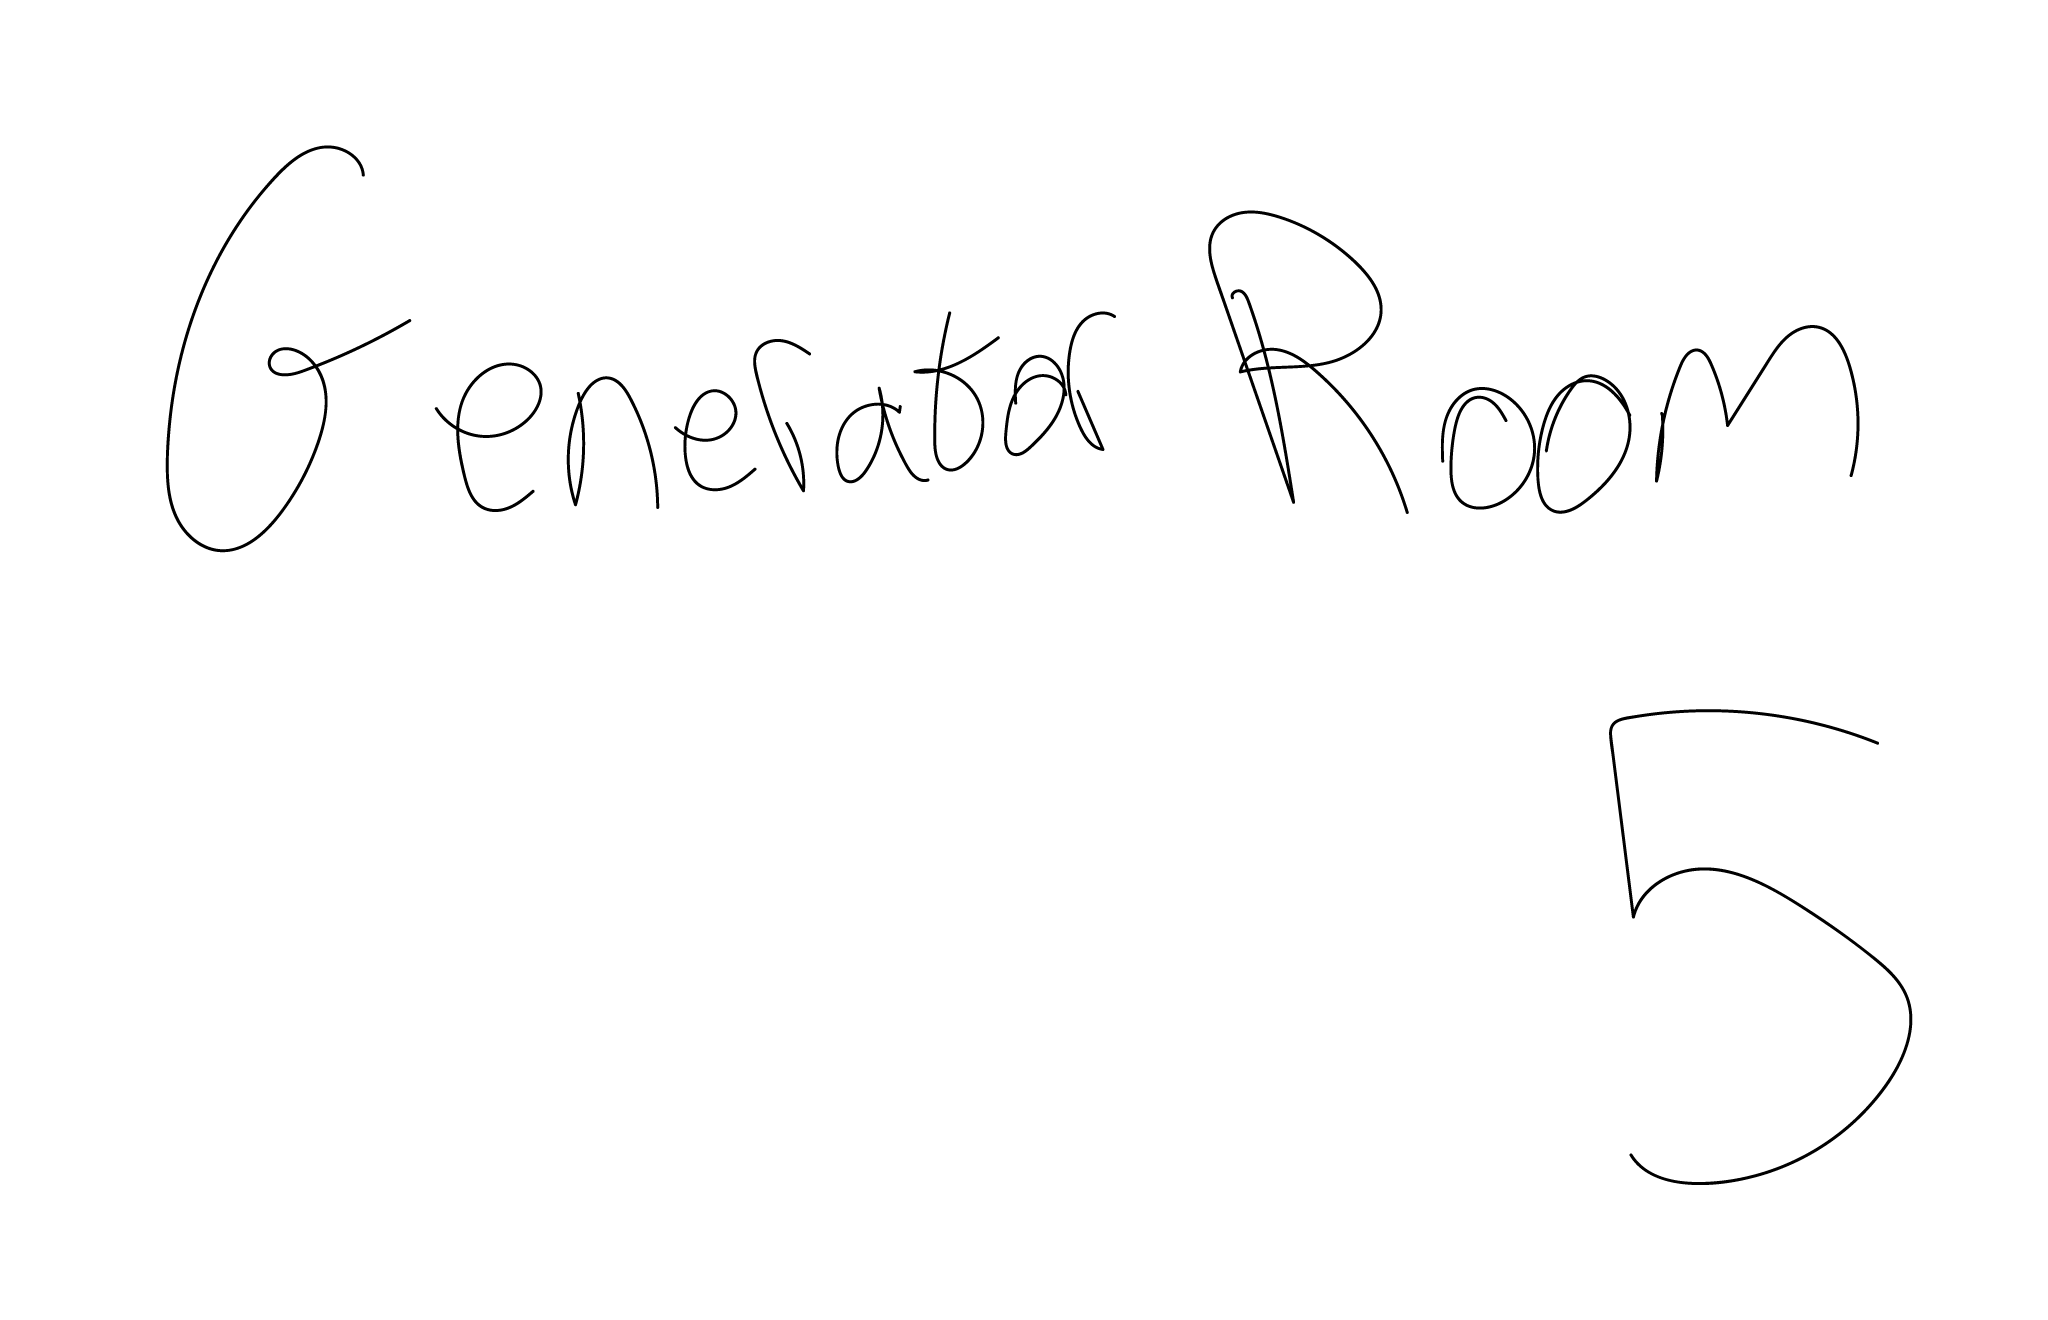 Generator Room
5